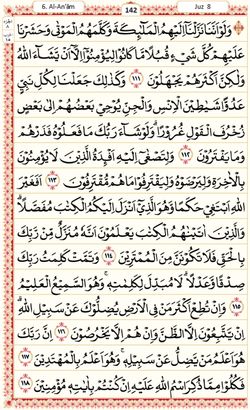 6. Al-An'ām
142
Juz 8
وَلَوْ أَنَّنَا نَزَّلْنَآ إِلَيْهِمُ الْمَلٰٓئِكَةَ وَكَلَّمَهُمُ الْمَوْتٰى وَحَشَرْنَا
عَلَيْهِمْ كُلَّ شَيْءٍ قُبُلًا مَّا كَانُوا لِيُؤْمِنُوٓا إِلَّآ أَنْ يَّشَآءَ اللّٰهُ
وَلٰكِنَّ أَكْثَرَهُمْ يَجْهَلُوْنَ ۝١١١ وَكَذٰلِكَ جَعَلْنَا لِكُلِّ نَبِيٍّ
عَدُوًّا شَيٰطِيْنَ الْإِنْسِ وَالْجِنِّ يُوْحِيْ بَعْضُهُمْ إِلٰى بَعْضٍ
زُخْرُفَ الْقَوْلِ غُرُوْرًا ۗ وَلَوْ شَآءَ رَبُّكَ مَا فَعَلُوْهُ فَذَرْهُمْ
وَمَا يَفْتَرُوْنَ ۝١١٢ وَلِتَصْغٰٓى إِلَيْهِ أَفْـِٕدَةُ الَّذِيْنَ لَا يُؤْمِنُوْنَ
بِالْاٰخِرَةِ وَلِيَرْضَوْهُ وَلِيَقْتَرِفُوْا مَا هُمْ مُّقْتَرِفُوْنَ ۝١١٣ أَفَغَيْرَ
اللّٰهِ أَبْتَغِيْ حَكَمًا وَّهُوَ الَّذِيْٓ أَنْزَلَ إِلَيْكُمُ الْكِتٰبَ مُفَصَّلًا ۗ
وَالَّذِيْنَ اٰتَيْنٰهُمُ الْكِتٰبَ يَعْلَمُوْنَ أَنَّهُ مُنَزَّلٌ مِّنْ رَّبِّكَ
بِالْحَقِّ فَلَا تَكُوْنَنَّ مِنَ الْمُمْتَرِيْنَ ۝١١٤ وَتَمَّتْ كَلِمَتُ رَبِّكَ
صِدْقًا وَّعَدْلًا ۗ لَا مُبَدِّلَ لِكَلِمٰتِهٖ ۚ وَهُوَ السَّمِيْعُ الْعَلِيْمُ
۝١١٥ وَإِنْ تُطِعْ أَكْثَرَ مَنْ فِي الْأَرْضِ يُضِلُّوْكَ عَنْ سَبِيْلِ اللّٰهِ ۗ
إِنْ يَّتَّبِعُوْنَ إِلَّا الظَّنَّ وَإِنْ هُمْ إِلَّا يَخْرُصُوْنَ ۝١١٦ إِنَّ رَبَّكَ
هُوَ أَعْلَمُ مَنْ يَّضِلُّ عَنْ سَبِيْلِهٖ ۚ وَهُوَ أَعْلَمُ بِالْمُهْتَدِيْنَ ۝١١٧
فَكُلُوْا مِمَّا ذُكِرَ اسْمُ اللّٰهِ عَلَيْهِ إِنْ كُنْتُمْ بِاٰيٰتِهٖ مُؤْمِنِيْنَ ۝١١٨